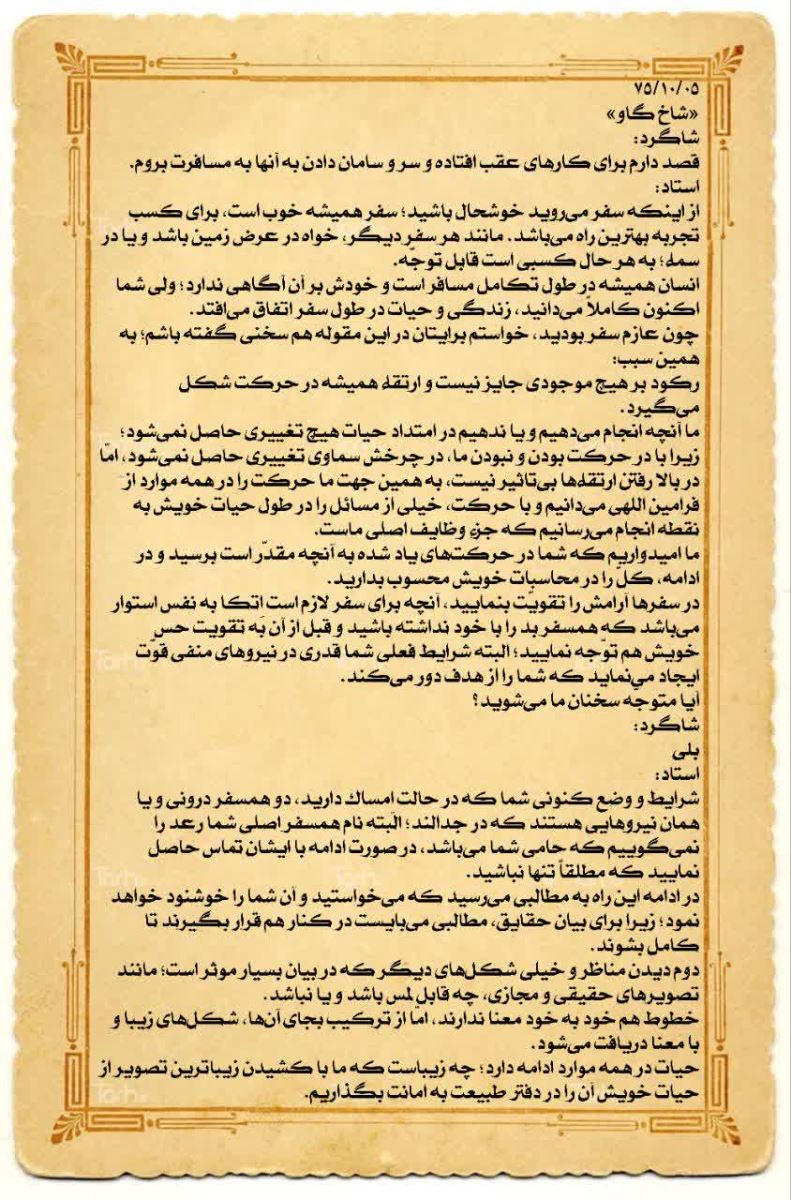 ۷۵/۱۰/۰۵
«شاخ گاو»
شاگرد:
قصد دارم برای کارهای عقب افتاده و سر و سامان دادن به آنها به مسافرت بروم.
استاد:
از اینکه سفر می‌روید خوشحال باشید؛ سفر همیشه خوب است، برای کسب
تجربه بهترین راه می‌باشد. مانند هر سفر دیگر، خواه در عرض زمین باشد و یا در
سماء؛ به هر حال کسبی است قابل توجّه.
انسان همیشه در طول تکامل مسافر است و خودش بر آن آگاهی ندارد؛ ولی شما
اکنون کاملاً می‌دانید، زندگی و حیات در طول سفر اتفاق می‌افتد.
چون عازم سفر بودید، خواستم برایتان در این مقوله هم سخنی گفته باشم؛ به
همین سبب:
رکود بر هیچ موجودی جایز نیست و ارتقاء همیشه در حرکت شکل
می‌گیرد.
ما آنچه انجام می‌دهیم و یا ندهیم در امتداد حیات هیچ تغییری حاصل نمی‌شود؛
زیرا با در حرکت بودن و نبودن ما، در چرخش سماوی تغییری حاصل نمی‌شود، امّا
در بالا رفتن ارتقاءها بی‌تاثیر نیست، به همین جهت ما حرکت را در همه موارد از
فرامین اللهی می‌دانیم و با حرکت، خیلی از مسائل را در طول حیات خویش به
نقطه انجام می‌رسانیم که جزءِ وظایف اصلی ماست.
ما امیدواریم که شما در حرکت‌های یاد شده به آنچه مقدّر است برسید و در
ادامه، کلّ را در محاسبات خویش محسوب بدارید.
در سفرها آرامش را تقویّت بنمایید، آنچه برای سفر لازم است اتکا به نفس استوار
می‌باشد که همسفر بد را با خود نداشته باشید و قبل از آن به تقویت حسّ
خویش هم توّجه نمایید؛ البته شرایط فعلی شما قدری در نیروهای منفی قوّت
ایجاد می‌نماید که شما را از هدف دور می‌کند.
آیا متوجه سخنان ما می‌شوید؟
شاگرد:
بلی
استاد:
شرایط و وضع کنونی شما که در حالت امساک دارید، دو همسفر درونی و یا
همان نیروهایی هستند که در جدالند؛ البته نام همسفر اصلی شما رعد را
نمی‌گوییم که حامی شما می‌باشد، در صورت ادامه با ایشان تماس حاصل
نمایید که مطلقاً تنها نباشید.
در ادامه این راه به مطالبی می‌رسید که می‌خواستید و آن شما را خوشنود خواهد
نمود؛ زیرا برای بیان حقایق، مطالبی می‌بایست در کنار هم قرار بگیرند تا
کامل بشوند.
دوم دیدن مناظر و خیلی شکل‌های دیگر که در بیان بسیار موثر است؛ مانند
تصویرهای حقیقی و مجازی، چه قابل لمس باشد و یا نباشد.
خطوط هم خود به خود معنا ندارند، امّا از ترکیب بجای آن‌ها، شکل‌های زیبا و
با معنا دریافت می‌شود.
حیات در همه موارد ادامه دارد؛ چه زیباست که ما با کشیدن زیباترین تصویر از
حیات خویش آن را در دفتر طبیعت به امانت بگذاریم.